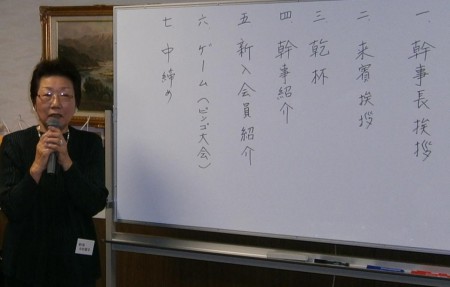 一、幹事長挨拶
二、来賓挨拶
三、乾杯
四、幹事紹介
五、新入会員紹介
六、ゲーム(ビンゴ大会)
七、中締め